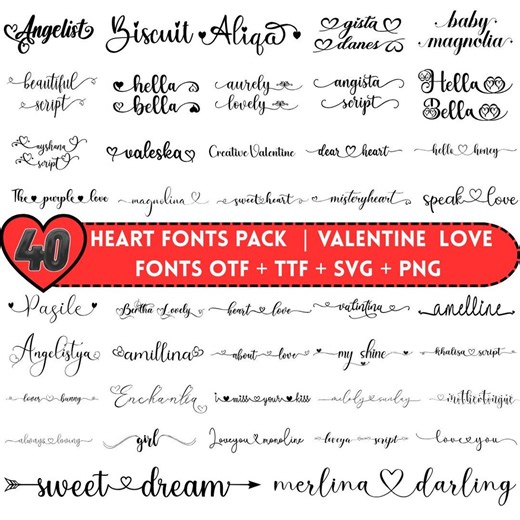 Angelist Biscuit Aliqa gista danes baby magnolia
beautiful script hella bella aurely lovely angista script Hella Bella
ayshana script valeska Creative Valentine dear heart hello honey
The purple love magnolina sweet heart misteryheart speak love
40 HEART FONTS PACK | VALENTINE LOVE
FONTS OTF + TTF + SVG + PNG
Pasile Bertha Lovely heart love valintina amelline
Angelistya amillina about love my shine khalisa script
loves bunny Enchantia i miss your kiss melody sunday mothertongue
always loving girl Loveyou monoline loveya script love you
sweet dream merlina darling